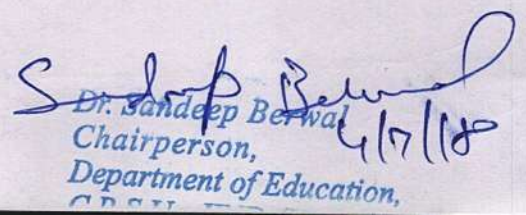 Sandeep Berwal
Dr. Sandeep Berwal
4/7/18
Chairperson,
Department of Education,